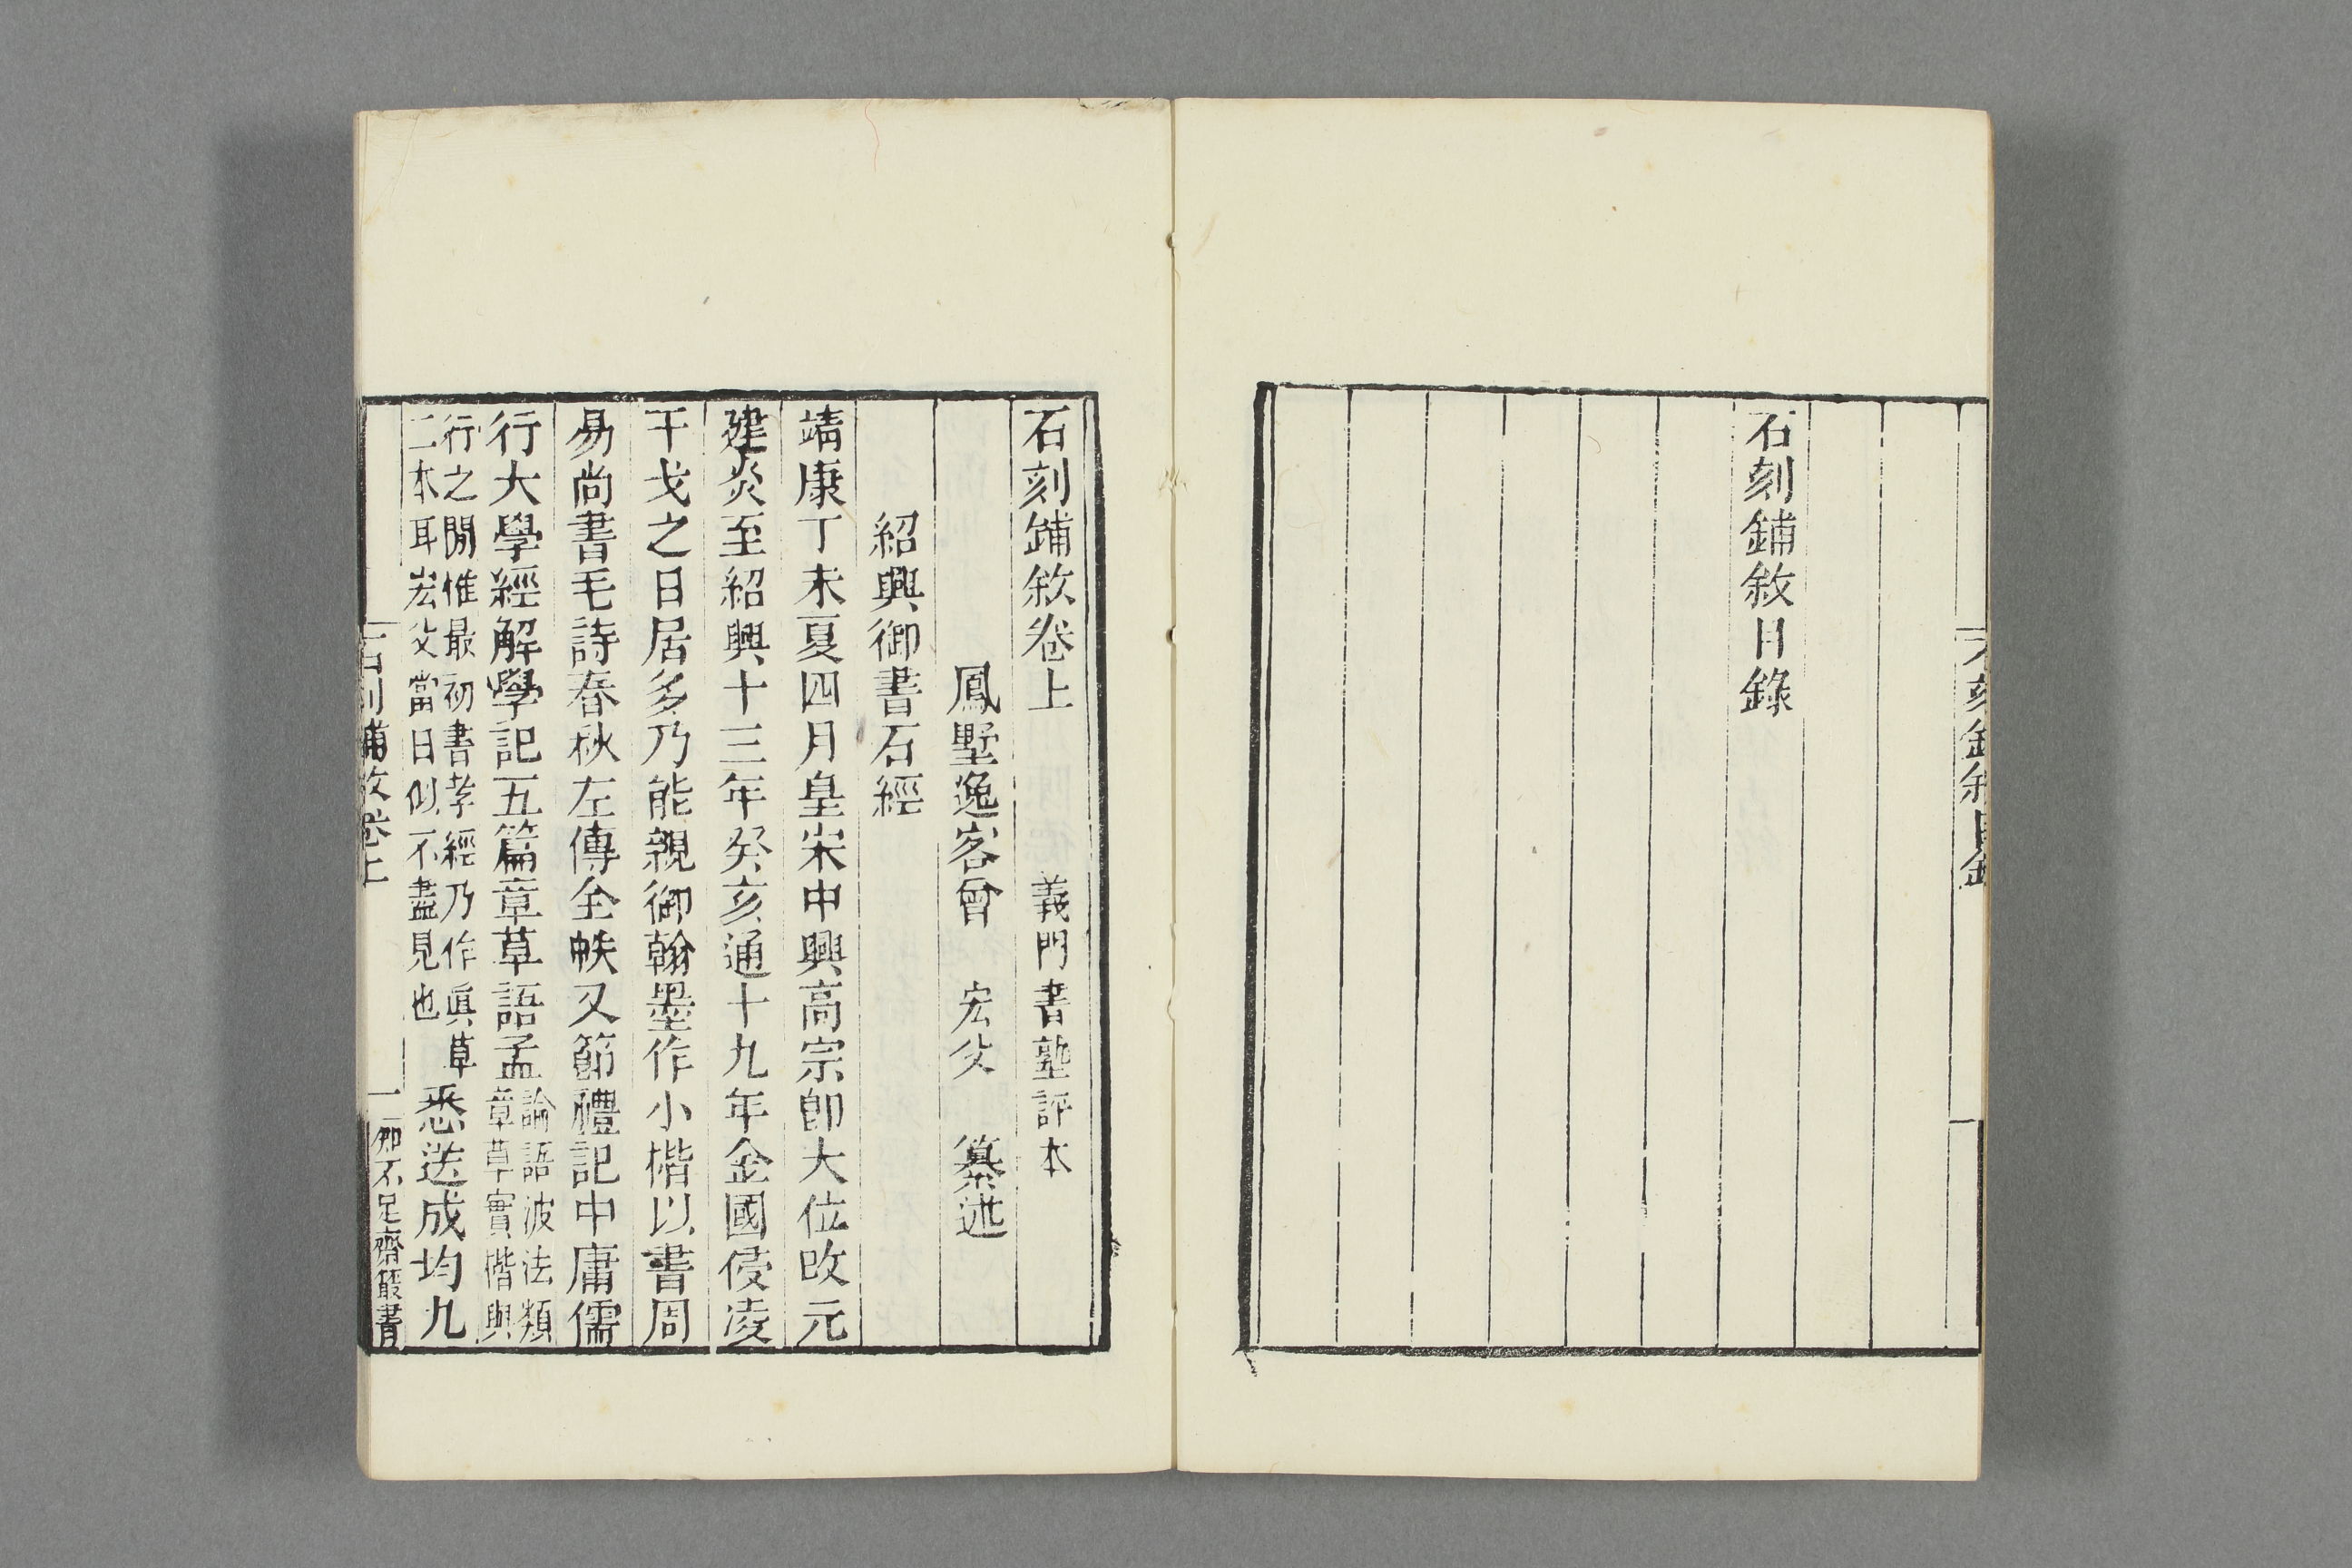 石刻鋪敘目錄
石刻鋪敘卷上　義門書塾評本
鳳墅逸客曾　宏父　纂述
紹興御書石經
靖康丁未夏四月皇宋中興高宗卽大位改元
建炎至紹興十三年癸亥通十九年金國侵凌
干戈之日居多乃能親御翰墨作小楷以書周
易尚書毛詩春秋左傳全帙又節禮記中庸儒
行大學經解學記五篇章草語孟論語波法類
章草實楷與
行之閒惟最初書孝經乃作眞草
二本耳宏父當日似不盡見也
悉送成均九
石刻鋪敘卷上
一
知不足齋叢書